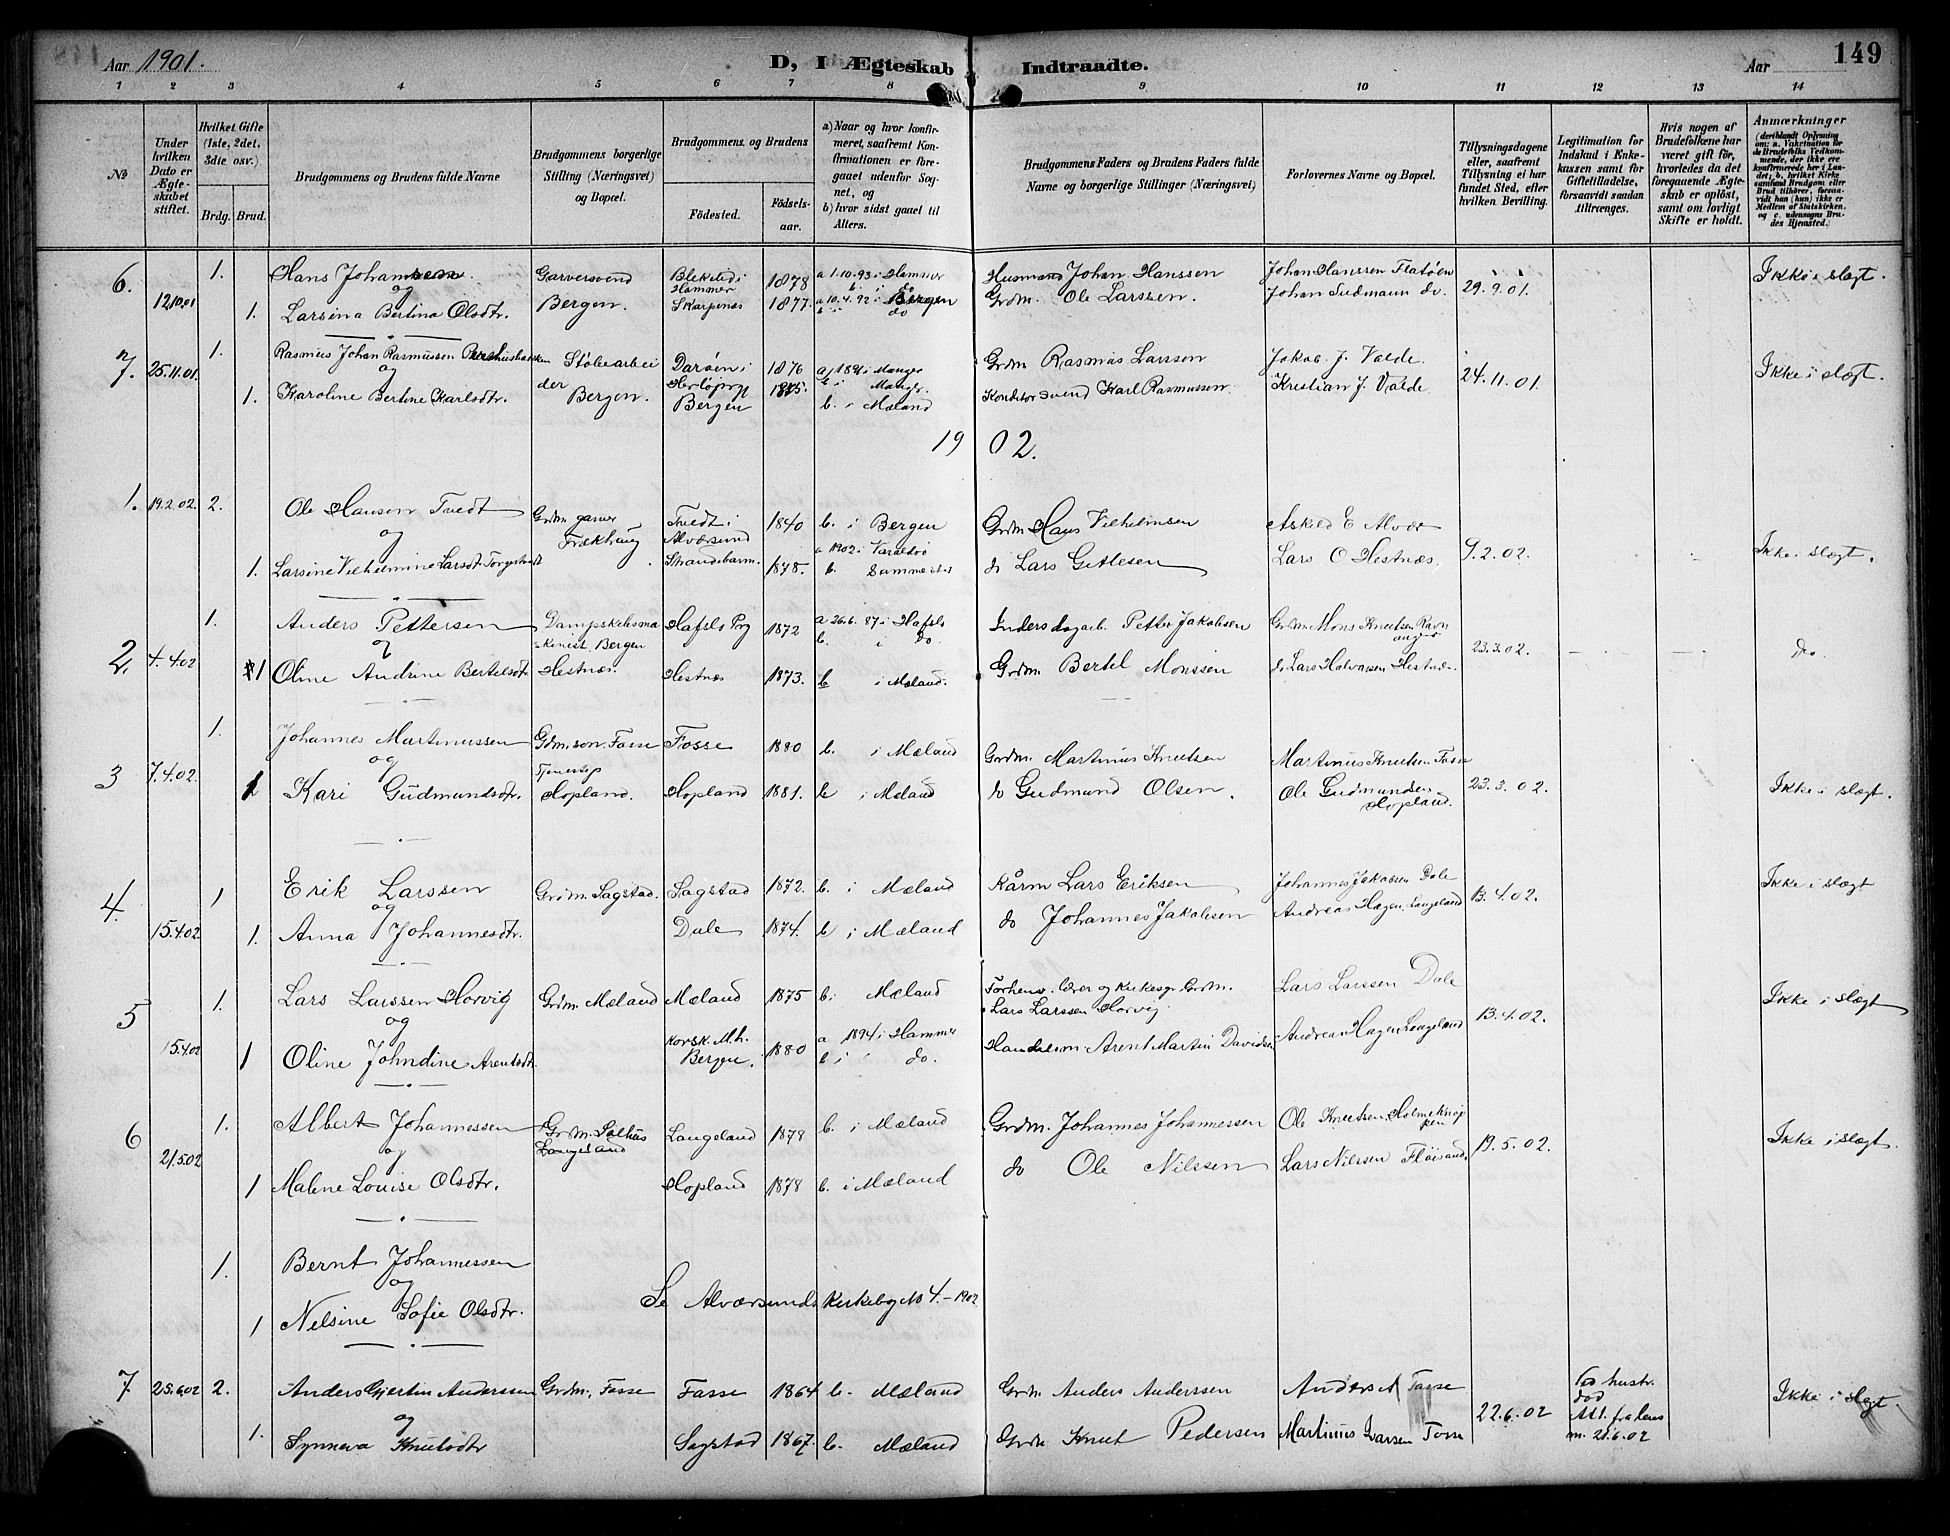 Aar 1901.
D, I Ægteskab Indtraadte.
Aar
149
1 2 3 4 5 6 7 8 9 10 11 12 13 14
No
Under hvilken Dato er Ægteskabet stiftet.
Hvilket Gifte (1ste, 2det, 3die osv.)
Brdg. Brud.
Brudgommens og Brudens fulde Navne
Brudgommens borgerlige Stilling (Næringsvei) og Bopæl.
Brudgommens. og Brudens
Fødested.
Fødselsaar.
a) Naar og hvor konfirmeret, saafremt Konfirmationen er foregaaet udenfor Sognet, og
b) hvor sidst gaaet til Alters.
Brudgommens Faders og Brudens Faders fulde Navne og borgerlige Stillinger (Næringsvei)
Forlovernes Navne og Bopæl.
Tillysningsdagene eller, saafremt Tillysning ei har fundet Sted, efter hvilken Bevilling.
Legitimation for Indskud i Enkekassen samt for Giftetilladelse, forsaavidt saadan tiltrænges.
Hvis nogen af Brudefolkene har været gift før, hvorledes da det foregaaende Ægteskab er opløst, samt om lovligt Skifte er holdt.
Anmærkninger
6. 12.10.01 1. Hans Johanssen Garversvend Blekilsd i Hammer 1878 a 1.10.93 i Hammer b. i do Husmand Johan Hanssen Johan Hanssen Flatøen 29.9.01. Ikke i slægt.
og
1. Larsina Bertina Olsdtr. Bergen. Skarpenæs 1877. a 10.4.92 i Bergen b i do Grdm. Ole Larssen. Johan Ludmann do.
7. 25.11.01. 1. Rasmus Johan Rasmussen Støbearbeider Darøen i Herløpgj 1876 a 1891 i Manger b i Manger Grdm Rasmus Larssen Jakob J. Valde 24.11.01. Ikke i slægt.
og
1. Karoline Bertine Karlsdtr. Bergen. Bergen 1875. b. i Mæland Konditorsvend Karl Rasmussen Kristian J. Valde
1902.
1. 19.2.02. 2. Ole Hansen Tvedt Grdm Frækhaug Tvedt i Alværsund 1840 b. i Bergen Grdm Hans Vilhelmsen Askild E Alvær 9.2.02. Ikke i slægt.
og
1. Larsine Vilhelmine Larsdt. Strandebarm. 1878. a 1902 i b. do Lars Gitlesen Lars O Hestnæs.
2. 4.4.02 1. Anders Pettersen Dampskibsmaskinist, Bergen Hafslo Prg 1872 a 26.6.87 i Hafslo b. i do. Petter Jakobsen Grdm. Mons Knutsen Ravnanger 23.3.02. do.
og
1 Oline Andrine Bertelsdtr Hestnæs. Hestnæs 1873. b i Mæland. Grdm. Bertel Monssen do Lars Halvorsen Hestnæs
3 7.4.02. 1. Johannes Martinussen Grdm.søn. Fosse Fosse 1880 b. i Mæland Grdm. Martinus Knutsen Martinus Knutsen Fosse 23.3.02. Ikke i slægt.
og
1 Kari Gudmundsdtr. Tjenestep Hopland. Hopland 1881. b i Mæland do Gudmund Olsen. Ole Gudmundsen Hopland.
4. 15.4.02. 1 Erik Larssen Grdm. Sagstad. Sagstad 1872. b. i Mæland Kårm Lars Eriksen Johannes Jakobsen Dale 13.4.02. Ikke i slægt
og
1. Anna Johannesdtr. Dale 1874. b i Mæland do Johannes Jakobsen Andreas Hagen, Langeland
5 15.4.02 1. Lars Larssen Horvig Grdm. Mæland Mæland 1875 b. i Mæland Forhenv. lærer og kirkesgr. Grdm. Lars Larssen Horvig Lars Larssen Dale 13.4.02. Ikke i slægt
og
1 Oline Johndine Arentsdtr. Korsk. M.h. Bergen. 1880 a 1894 i Hammer b i do. Handelsm. Arent Martin Davidsen Andreas Hagen Langeland
6 21.5.02 1. Albert Johannessen Grdm. Salhus Langeland Langeland 1878 b. i Mæland Grdm. Johannes Johannessen Ole Knutsen Holmeknappen 19.5.02. Ikke i slægt.
og
1 Malene Louise Olsdtr. Hopland 1878 b. i Mæland do Ole Nilssen Lars Nilssen Fløisand.
1. Bernt Johannessen
og
Se Alværsunds Kirkebog No 4. - 1902
1 Nelsine Sofie Olsdtr.
7. 25.6.02 2. Anders Gjertin Anderssen Grdm. Fosse Fosse 1864 b. Mæland Grdm Anders Anderssen Anders A Fosse 22.6.02 Fos hustr. død Att. fra lensm. 21.6.02 Ikke i slægt.
og
1. Synneva Knutsdtr Sagstad 1867. b. Mæland Grdm Knut Pedersen Martinus Larsen Fosse